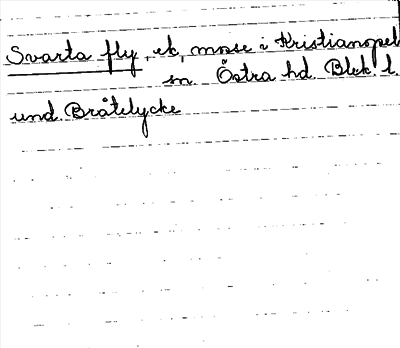 Svarta fly, ek, mosse i Kristianopel
sn Östra hd. Blek. l.
und. Bråtelycke